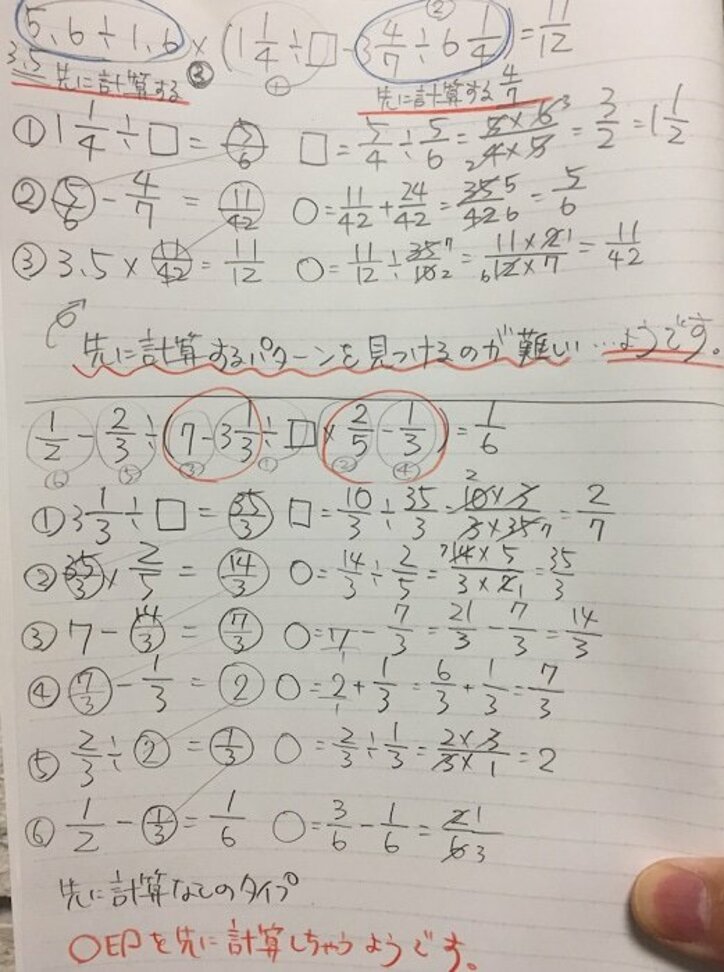 5.6÷1.6×(1 1/4÷□-3 4/7÷6 1/4)=11/12
②
3.5 先に計算する ③ ① 先に計算する 4/7
① 1 1/4÷□=5/6 □=5/4÷5/6=5×6/4×5 3 2=3/2=1 1/2
② 5/6-4/7=11/42 ○=11/42+24/42=35/42 5 6=5/6
③ 3.5×11/42=11/12 ○=11/12÷35/10 7 2=11×2/12×7 1 6=11/42
先に計算するパターンを見つけるのが難しい…ようです。
1/2-2/3÷(7-3 1/3÷□×2/5-1/3)=1/6
⑥ ⑤ ③ ① ② ④
① 3 1/3÷□=35/3 □=10/3÷35/3=10×3/3×35 2 7=2/7
② 35/3×2/5=14/3 ○=14/3÷2/5=14×5/3×2 7 1=35/3
③ 7-14/3=7/3 ○=7/1-7/3=21/3-7/3=14/3
④ 7/3-1/3=2 ○=2/1+1/3=6/3+1/3=7/3
⑤ 2/3÷2=1/3 ○=2/3÷1/3=2×3/3×1=2
⑥ 1/2-1/3=1/6 ○=3/6-1/6=2/6 1 3
先に計算なしのタイプ
○印を先に計算しちゃうようです。